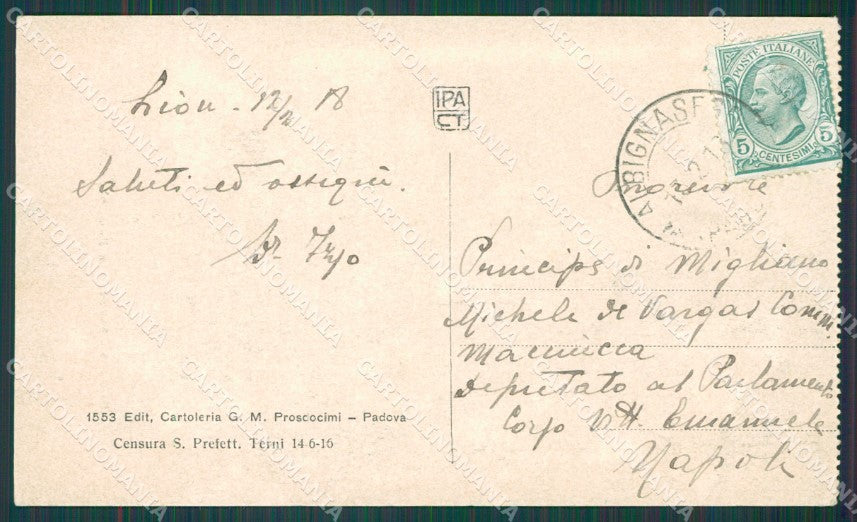 IPA
CT
POSTE ITALIANE
5 5
CENTESIMI
ALBIGNASE
Lion - 12/2 18
Saluti ed ossequi.
Principe di Migliano
Michele de Vargas Comm
Macciucca
deputato al Parlamento
Corso Vitt Emanuele
Napoli
1553 Edit, Cartoleria G. M. Proscocimi – Padova
Censura S. Prefett. Terni 14-6-16
CARTOLINOMANIA